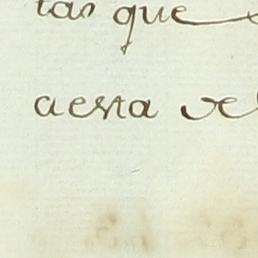 tas que
aesta